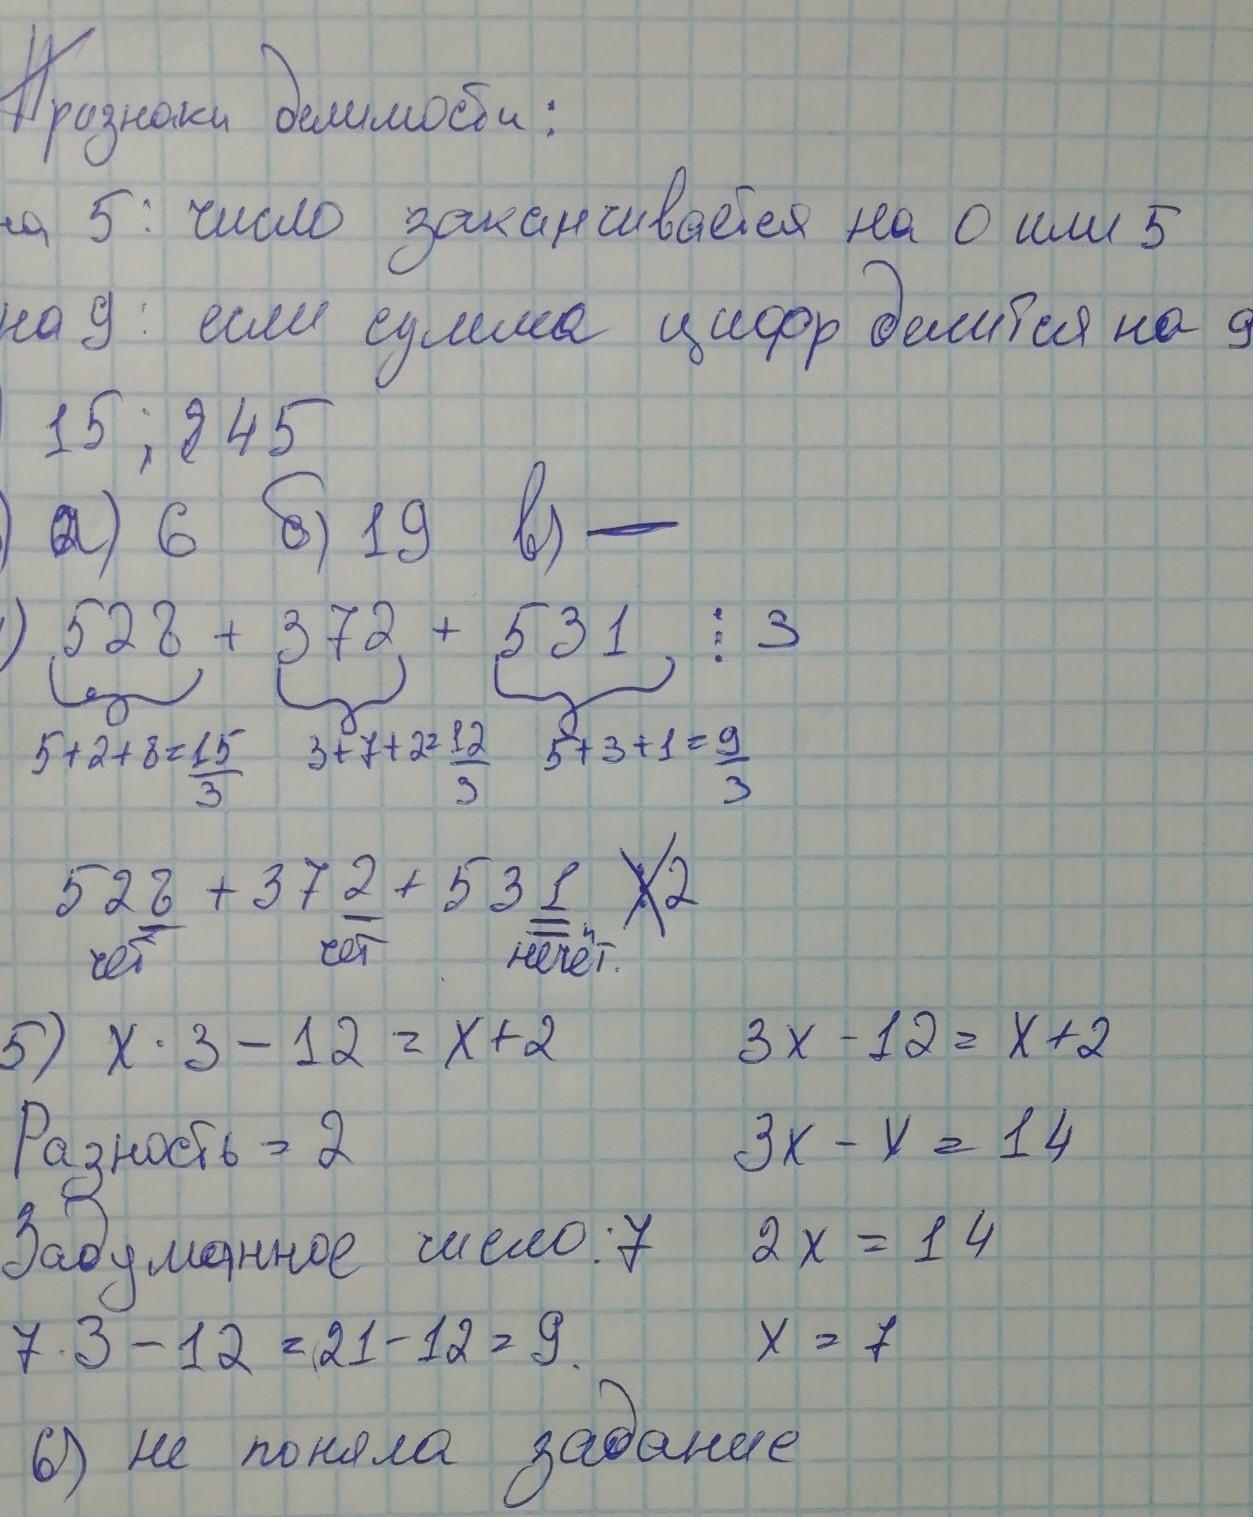 Признаки делимости:
на 5: число заканчивается на 0 или 5
на 9: если сумма цифр делится на 9
) 15; 245
) а) 6 б) 19 в) —
) 528 + 372 + 531 ⋮ 3
5+2+8=15/3 3+7+2=12/3 5+3+1=9/3
528 + 372 + 531 2
чет чет нечёт.
5) x · 3 - 12 = x + 2 3x - 12 = x + 2
Разность = 2 3x - x = 14
Задуманное число: 7 2x = 14
7 · 3 - 12 = 21 - 12 = 9. x = 7
6) не поняла задание